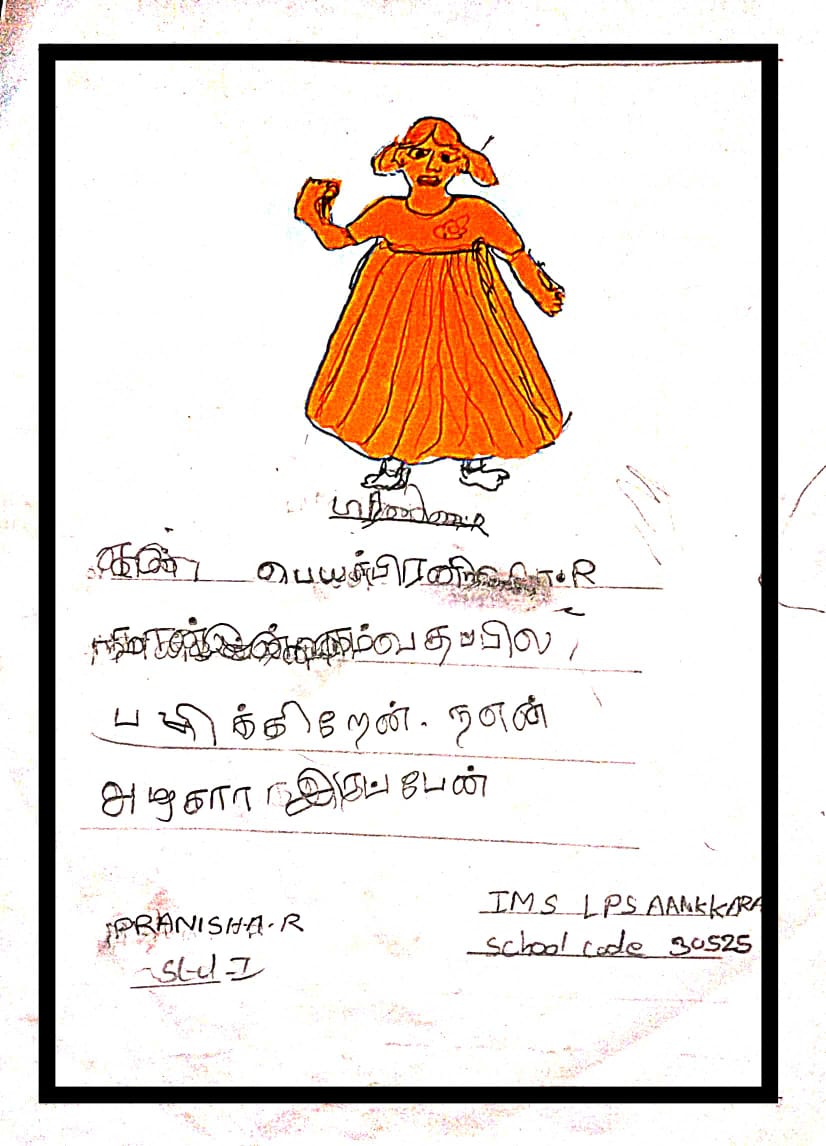 பெயர்பிரணிஷா.R
வகுப்பில்
படிக்கிறேன். நான்
அழகாா இருப்பேன்
PRANISHA.R
IMS LPS AANKKARA
Std-I
School code 30525